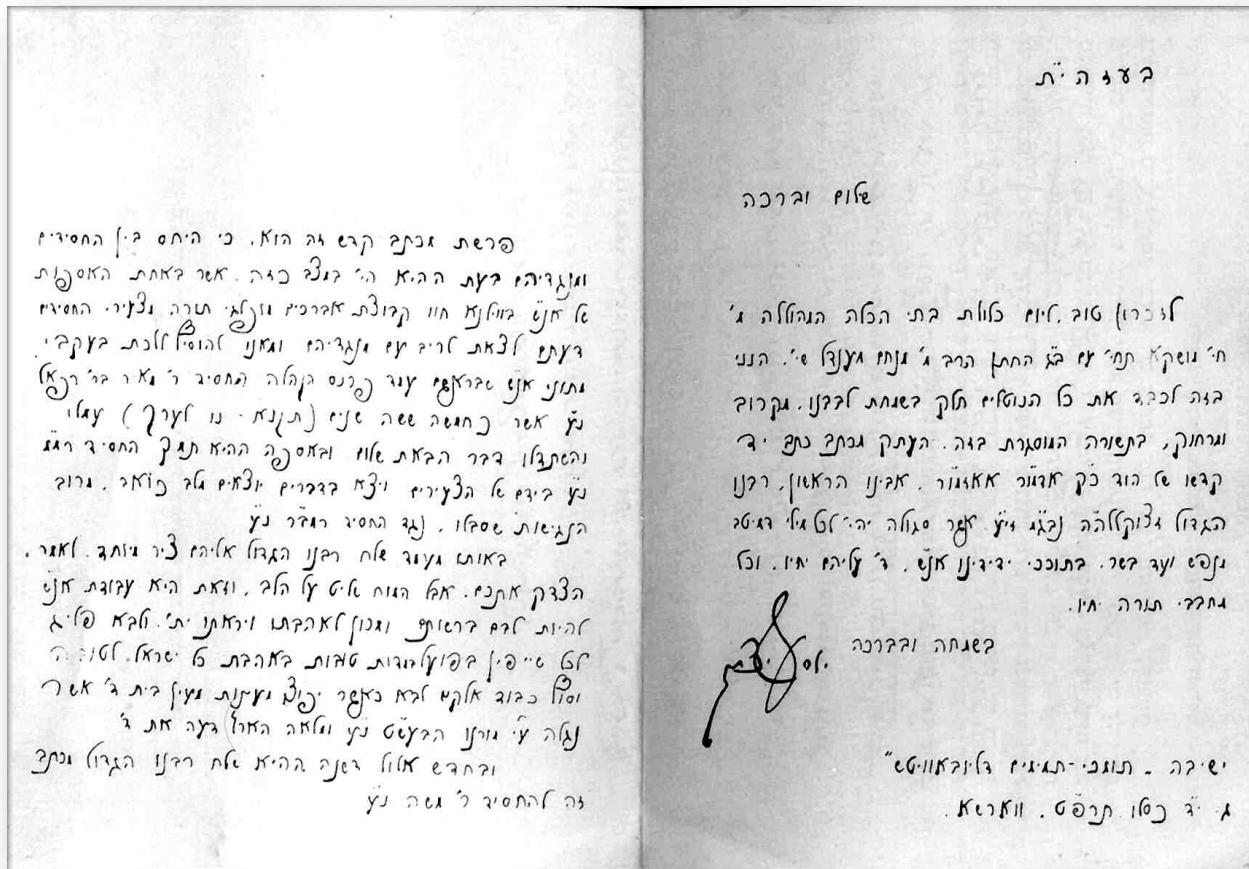 בעזה״ית
שלום וברכה
לזכרון טוב, ליום כלולת בתי הכלה המהוללה מ׳
חי׳ מושקא תחי׳ עם ב״ג החתן הרב מ׳ מנחם מענדל שי׳. הנני
בזה לכבד את כל הנוטלים חלק בשמחת לבבנו, מקרוב
ומרחוק, בתשורה המוסגרת בזה. העתק מכתב כתב יד
קדשו של הוד כ״ק אדמו״ר אאזמו״ר, אבינו הראשון, רבנו
הגדול זצוקללה״ה נבג״מ זי״ע. אשר סגולה יהי׳ לכל מילי דמיטב
מנפש ועד בשר. בתוככי ידידינו אנ״ש, ד׳ עליהם יחיו, וכל
מחבבי תורה יחיו.
בשמחה ובברכה
ישיבה - תומכי-תמימים דליובאוויטש״
ג׳ י״ד כסלו תרפ״ט. ווארשא.
פרשת מכתב קדש זה הוא, כי היחס בין החסידים
ומנגדיהם בעת ההיא הי׳ במצב כזה, אשר באחת האספות
של אנ״ש בווילנא חוו קבוצת אברכים מופלגי תורה מצעירי החסידים
דעתם לצאת לריב עם מנגדיהם ומאנו להוסיף ללכת בעקבי
מתוני אנ״ש שבראשם עמד פרנס הקהלה החסיד ר׳ מאיר בר׳ רפאל
נ״ע אשר כחמשה ששה שנים (תקנ״א - נו לערך) עמלו
והשתדלו דבר הבאת שלום. ובאספה ההיא תמך החסיד רמ״מ
נ״ע בידם של הצעירים ויצא בדברים יוצאים מלב כואב, מרוב
הנגישות שסבלו, נגד החסיד רמב״ר נ״ע
באותו מעמד שלח רבנו הגדול אליהם ציר מיוחד, לאמר,
הצדק אתכם, אבל המוח שליט על הלב, וזאת היא עבודת אנ״ש
להיות לבם ברשותם ומכון לאהבתו ויראתו ית׳, ולבא פליג
לכל שייפין בפועל במדות טובות באהבת כל ישראל, לטובה
וסוף כבוד אלקים לבא כאשר יפוצו מעינות מעין בית ד׳ אשר
נגלה ע״י מורנו הבעש״ט נ״ע ומלאה הארץ דעה את ד׳
ובחדש אלול דשנה ההיא שלח רבנו הגדול מכתב
זה להחסיד ר׳ משה נ״ע